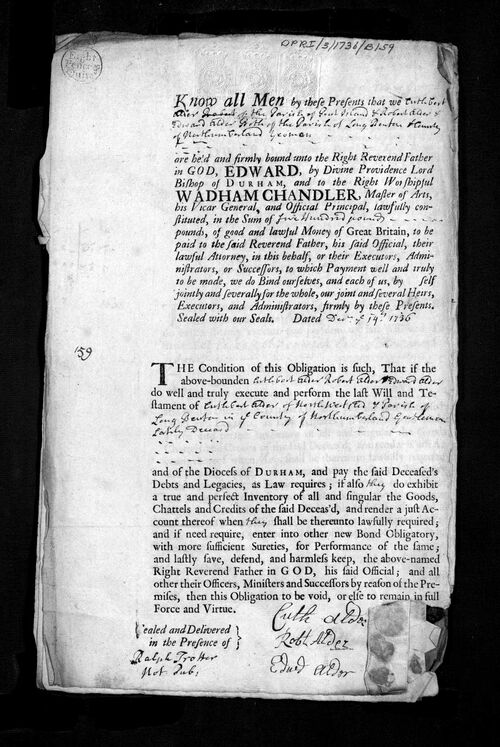 DPRI/3/1736/B159
Know all Men by these Presents that we Cuthbert
Alder of the Parish of Ford Island & Robert Alder &
Edward Alder Both of the Parish of Long Benton & County
of Northumberland Yeomen
are held and firmly bound unto the Right Reverend Father
in GOD, EDWARD, by Divine Providence Lord
Bishop of DURHAM, and to the Right Worshipful
WADHAM CHANDLER, Master of Arts,
his Vicar General, and Official Principal, lawfully con-
stituted, in the Sum of five Hundred pound
pounds, of good and lawful Money of Great Britain, to be
paid to the said Reverend Father, his said Official, their
lawful Attorney, in this behalf, or their Executors, Admi-
nistrators, or Successors, to which Payment well and truly
to be made, we do Bind ourselves, and each of us, by self
jointly and severally for the whole, our joint and several Heirs,
Executors, and Administrators, firmly by these Presents.
Sealed with our Seals. Dated Decr ye 19th 1736
159
THE Condition of this Obligation is such, That if the
above-bounden Cuthbert Alder Robert Alder & Edward Alder
do well and truly execute and perform the last Will and Te-
stament of Cuthbert Alder of North Weetsled & Parish of
Long Benton in ye County of Northumberland Gentleman
Lately Deceard
and of the Diocess of DURHAM, and pay the said Deceased's
Debts and Legacies, as Law requires; if also they do exhibit
a true and perfect Inventory of all and singular the Goods,
Chattels and Credits of the said Deceas'd, and render a just Ac-
count thereof when they shall be thereunto lawfully required;
and if need require, enter into other new Bond Obligatory,
with more sufficient Sureties, for Performance of the same;
and lastly save, defend, and harmless keep, the above-named
Right Reverend Father in GOD, his said Official; and all
other their Officers, Ministers and Successors by reason of the Pre-
mises, then this Obligation to be void, or else to remain in full
Force and Virtue.
Cuth Alder
Sealed and Delivered
in the Presence of
Robt Alder
Ralph Trotter
Not Pub:
Edwd Alder